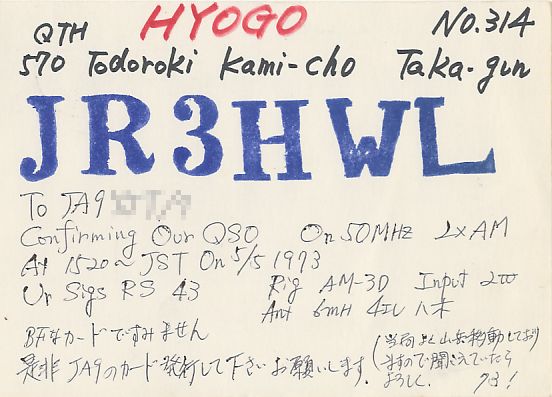 QTH HYOGO NO.314
570 Todoroki Kami-cho Taka-gun
JR3HWL
To JA9
Confirming Our QSO On 50MHz 2xAM
At 1520~ JST On 5/5 1973
Ur Sigs RS 43 Rig AM-3D Input 2W
Ant 6mH 4EL 八木
カードですみません
是非JA9のカード発行して下さいお願いします。
(当局よく山岳移動しており
ますので聞こえていたら
よろしく. 73!